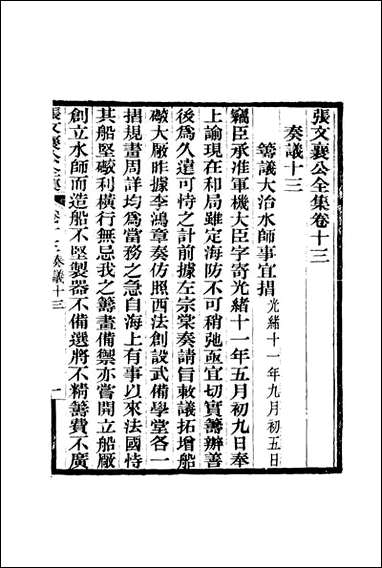 張文襄公全集卷十三
奏議十三
籌議大治水師事宜摺光緒十一年九月初五日
竊臣承准軍機大臣字寄光緒十一年五月初九日奉
上諭現在和局雖定海防不可稍弛亟宜切實籌辦善
後爲久遠可恃之計前據左宗棠奏請旨敕議拓增船
礮大廠昨據李鴻章奏仿照西法創設武備學堂各一
摺規畫周詳均爲當務之急自海上有事以來法國恃
其船堅礮利橫行無忌我之籌畫備禦亦嘗開立船廠
創立水師而造船不堅製器不備選將不精籌費不廣
張文襄公全集 卷十三奏議十三 一